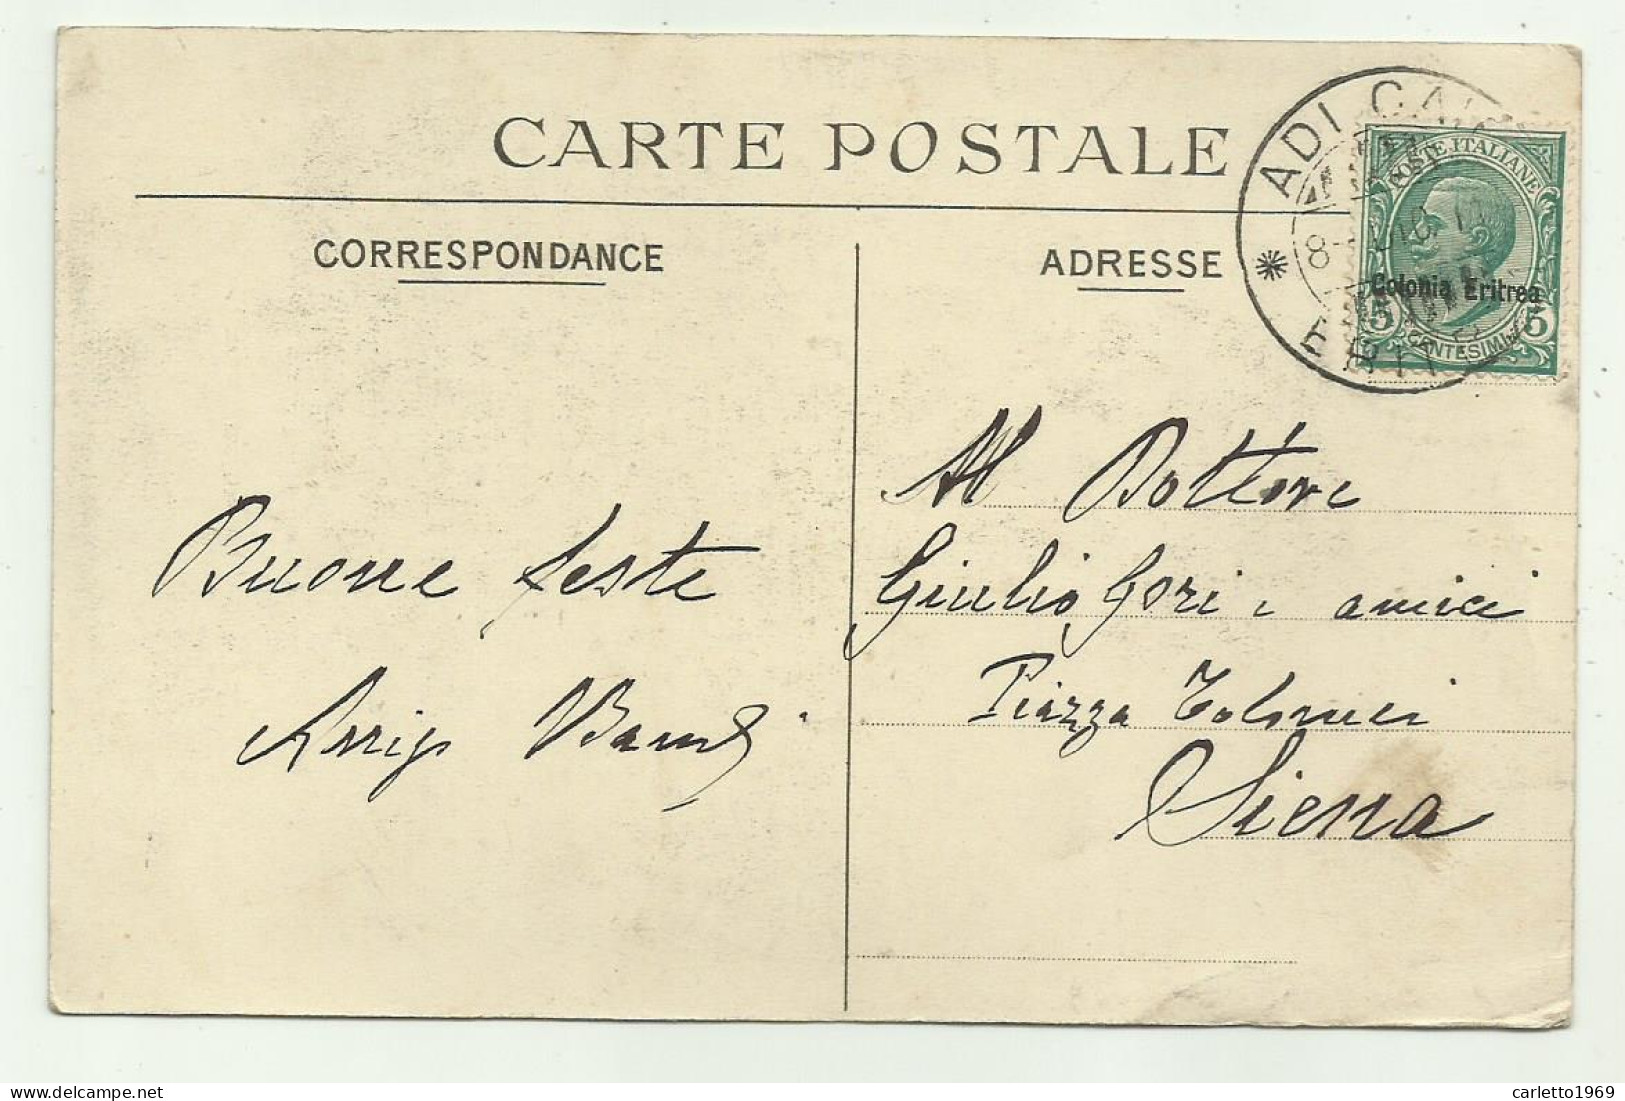 CARTE POSTALE
CORRESPONDANCE
ADRESSE
ADI CAI
8-
ERIT
POSTE ITALIANE
Colonia Eritrea
5 CENTESIMI 5
Al Dottore
Giulio Gori e amici
Piazza Tolomei
Siena
Buone feste
Arrigo Bandi
delcampe.net
carletto1969